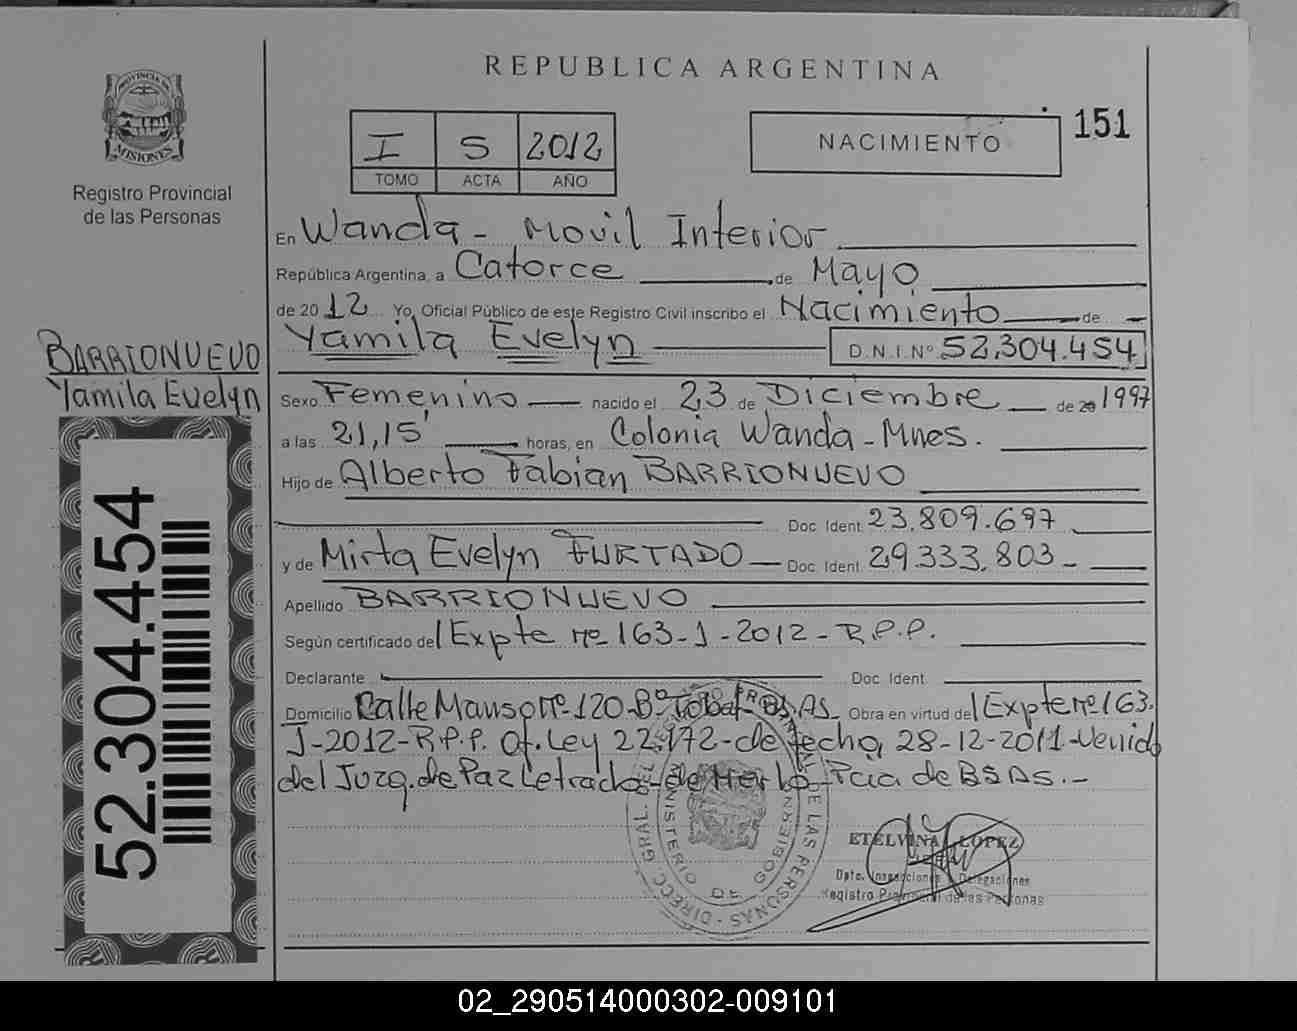 REPUBLICA ARGENTINA
PROVINCIA DE MISIONES
Registro Provincial
de las Personas
I S 2012
TOMO ACTA AÑO
NACIMIENTO
151
En Wanda - Movil Interior
República Argentina, a Catorce de Mayo
de 2012 Yo, Oficial Público de este Registro Civil inscribo el Nacimiento de -
Yamila Evelyn D.N.I. Nº 52.304.454
BARRIONUEVO
Yamila Evelyn
Sexo Femenino nacido el 23 de Diciembre de 1997
a las 21,15' horas, en Colonia Wanda - Mnes.
Hijo de Alberto Fabian BARRIONUEVO
Doc. Ident. 23.809.697
y de Mirta Evelyn FURTADO - Doc. Ident. 29.333.803 -
Apellido BARRIONUEVO
Según certificado de l Expte nº 163-J-2012-R.P.P.
Declarante Doc. Ident.
Domicilio Calle Manso nº 120-Bº - BS.AS. Obra en virtud de l Expte nº 163-
J-2012-R.P.P. Of. Ley 22.172-de fecha, 28-12-2011-Venido
del Juzg. de Paz Letrado-de Merlo-Pcia de BSAs.-
52.304.454
DIRECC. GRAL. DEL REGISTRO PROVINCIAL DE LAS PERSONAS
MINISTERIO DE GOBIERNO
ETELVINA LOPEZ
Dpto. Inspecciones Delegaciones
Registro Provincial de las Personas
02_290514000302-009101